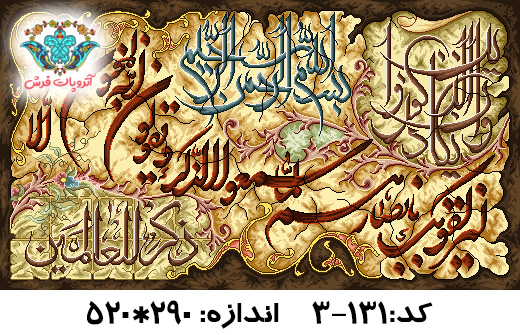 آتروپات فرش
بسم الله الرحمن الرحیم
وان یکاد الذین کفروا
لیزلقونک بابصارهم
لما سمعوا الذکر ویقولون انه لمجنون
وما هو الا
ذکر للعالمین
کد:۱۳۱-۳ اندازه: ۲۹۰*۵۲۰